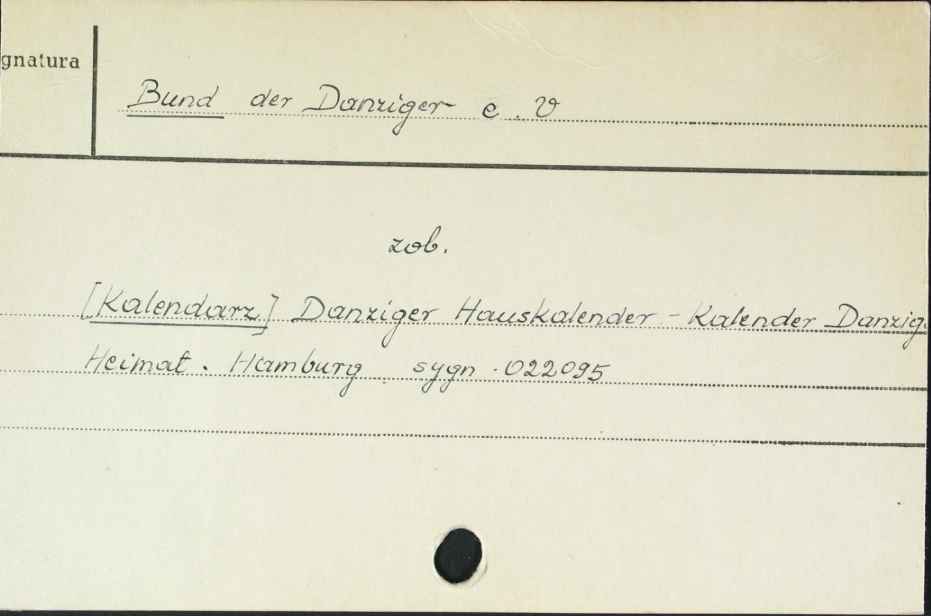 gnatura
Bund der Danziger e. V
zob.
[Kalendarz] Danziger Hauskalender - Kalender Danzig.
Heimat. Hamburg sygn. 022095